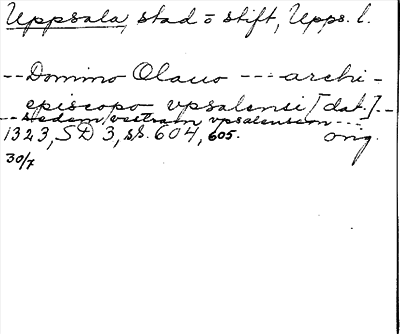 Uppsala, stad o stift, Upps. l.
-- Domino Olauo --- archi-
episcopo vpsalensi [dat.] --
-- sedem vestram vpsalensem ---
1323, SD 3, ss. 604, 605. orig.
30/7